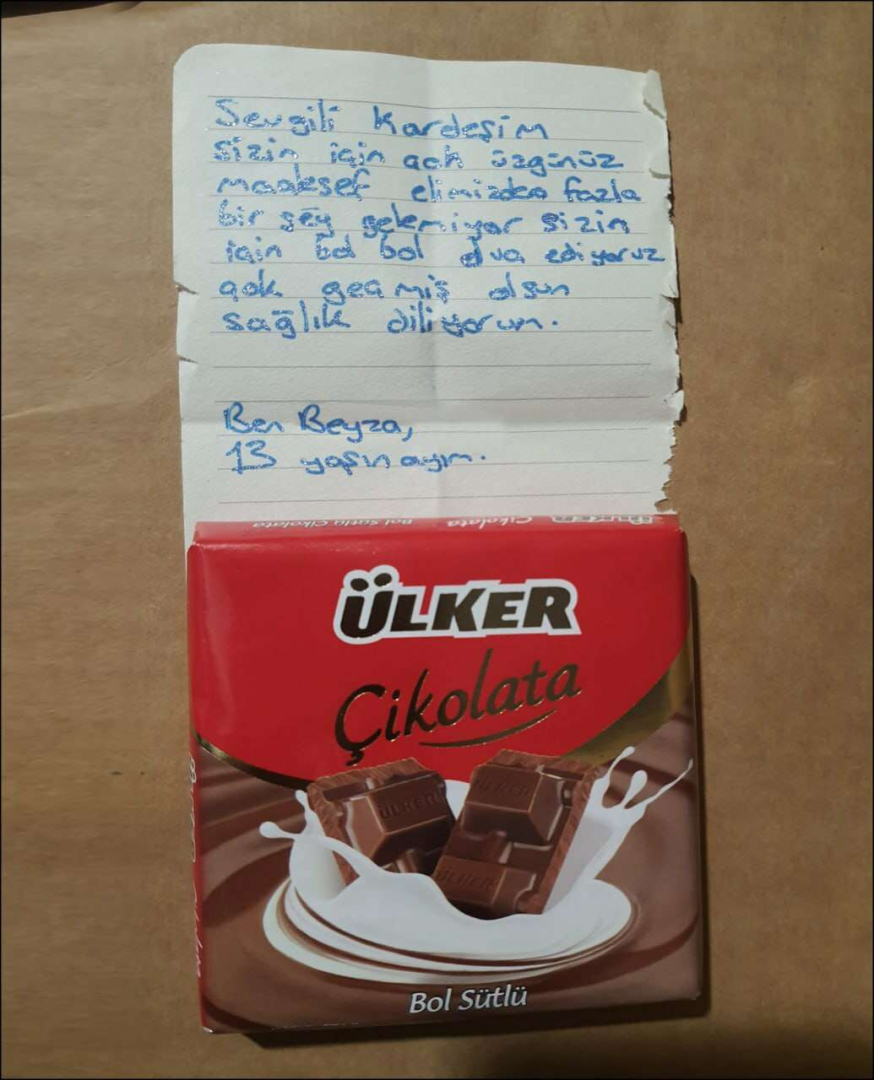 Sevgili Kardeşim
sizin için çok üzgünüz
maalesef elimizden fazla
bir şey gelemiyor sizin
için bol bol dua ediyoruz
çok geçmiş olsun
sağlık diliyorum.
Ben Beyza,
13 yaşınayım.
Bol Sütlü Çikolata Çikolata ÜLKER
ÜLKER
Çikolata
ÜLKER
ÜLKER
ÜLKER
Bol Sütlü